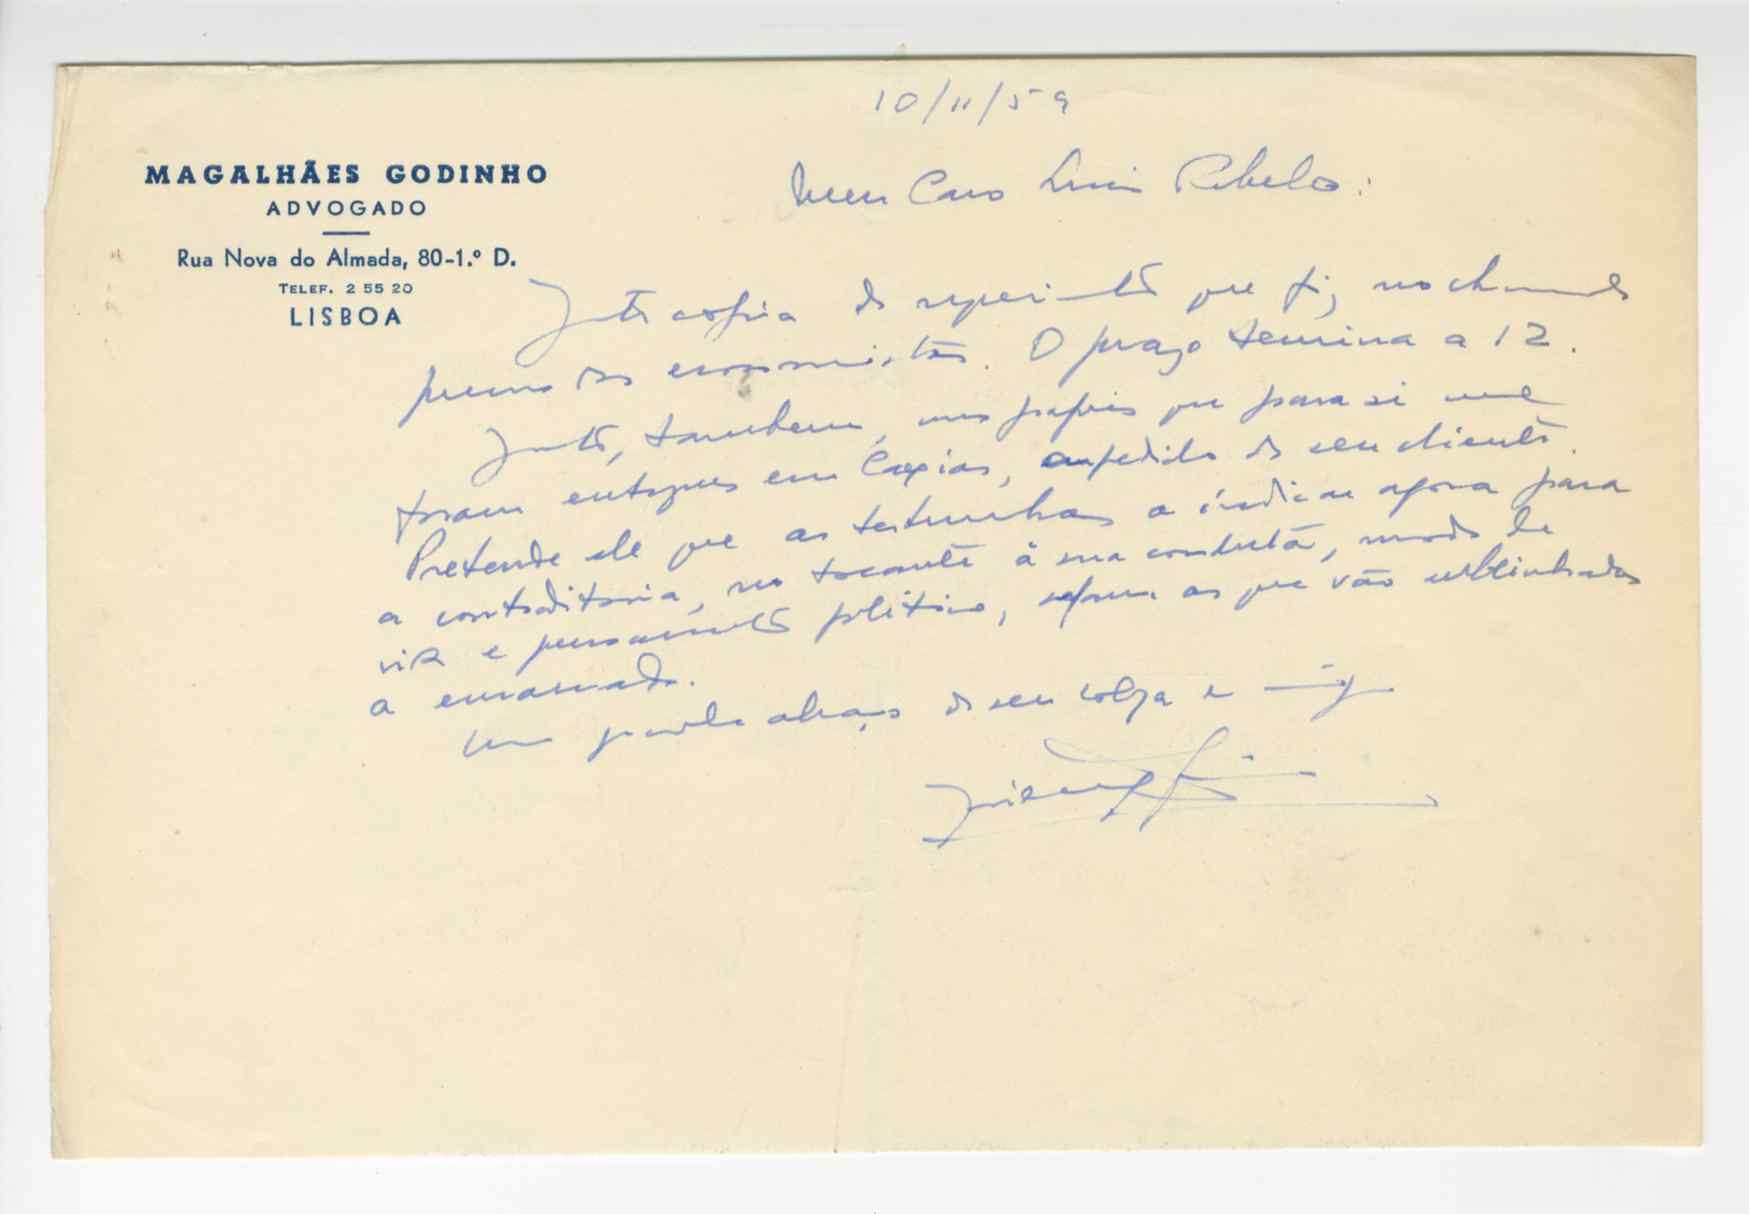 10/11/59
MAGALHÃES GODINHO
ADVOGADO
Rua Nova do Almada, 80-1.º D.
TELEF. 2 55 20
LISBOA
Meu Caro Luis Rebelo:
Junto copia do requerimento que fiz, no chamado
processo dos economistas. O prazo termina a 12.
Junto, tambem, uns papeis que para si me
foram entregues em Caxias, a pedido do seu cliente.
Pretende ele que as testemunhas a indicar agora para
a contraditoria, no tocante à sua conduta, modo de
vida e pensamento politico, sejam as que vão sublinhadas
a encarnado.
Um grande abraço do seu colega e amigo